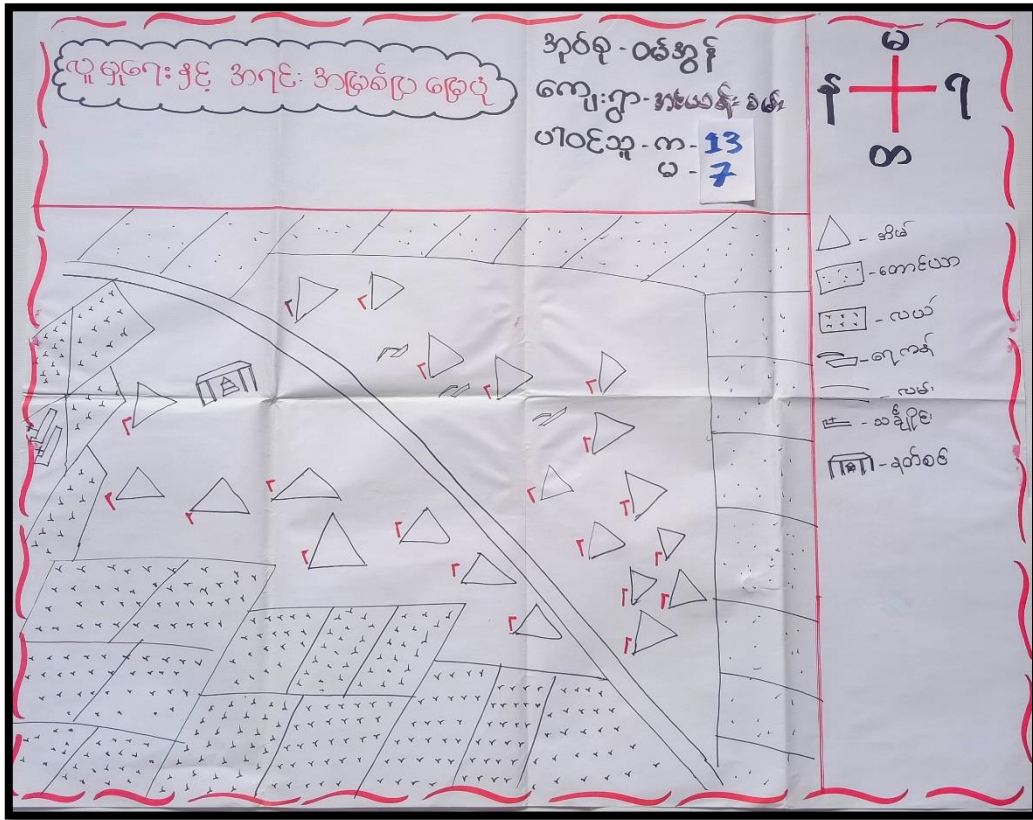 လူမှုရေးနှင့် အရင်းအမြစ်ပြ မြေပုံ
အုပ်စု - ဝမ်အွန်
ကျေးရွာ -
ပါဝင်သူ - ကျ - 13
မ - 7
မ
န
ရ
တ
အိမ်
တောင်ယာ
လယ်
ရေကန်
လမ်း
သင်္ချိုင်း
နတ်စင်